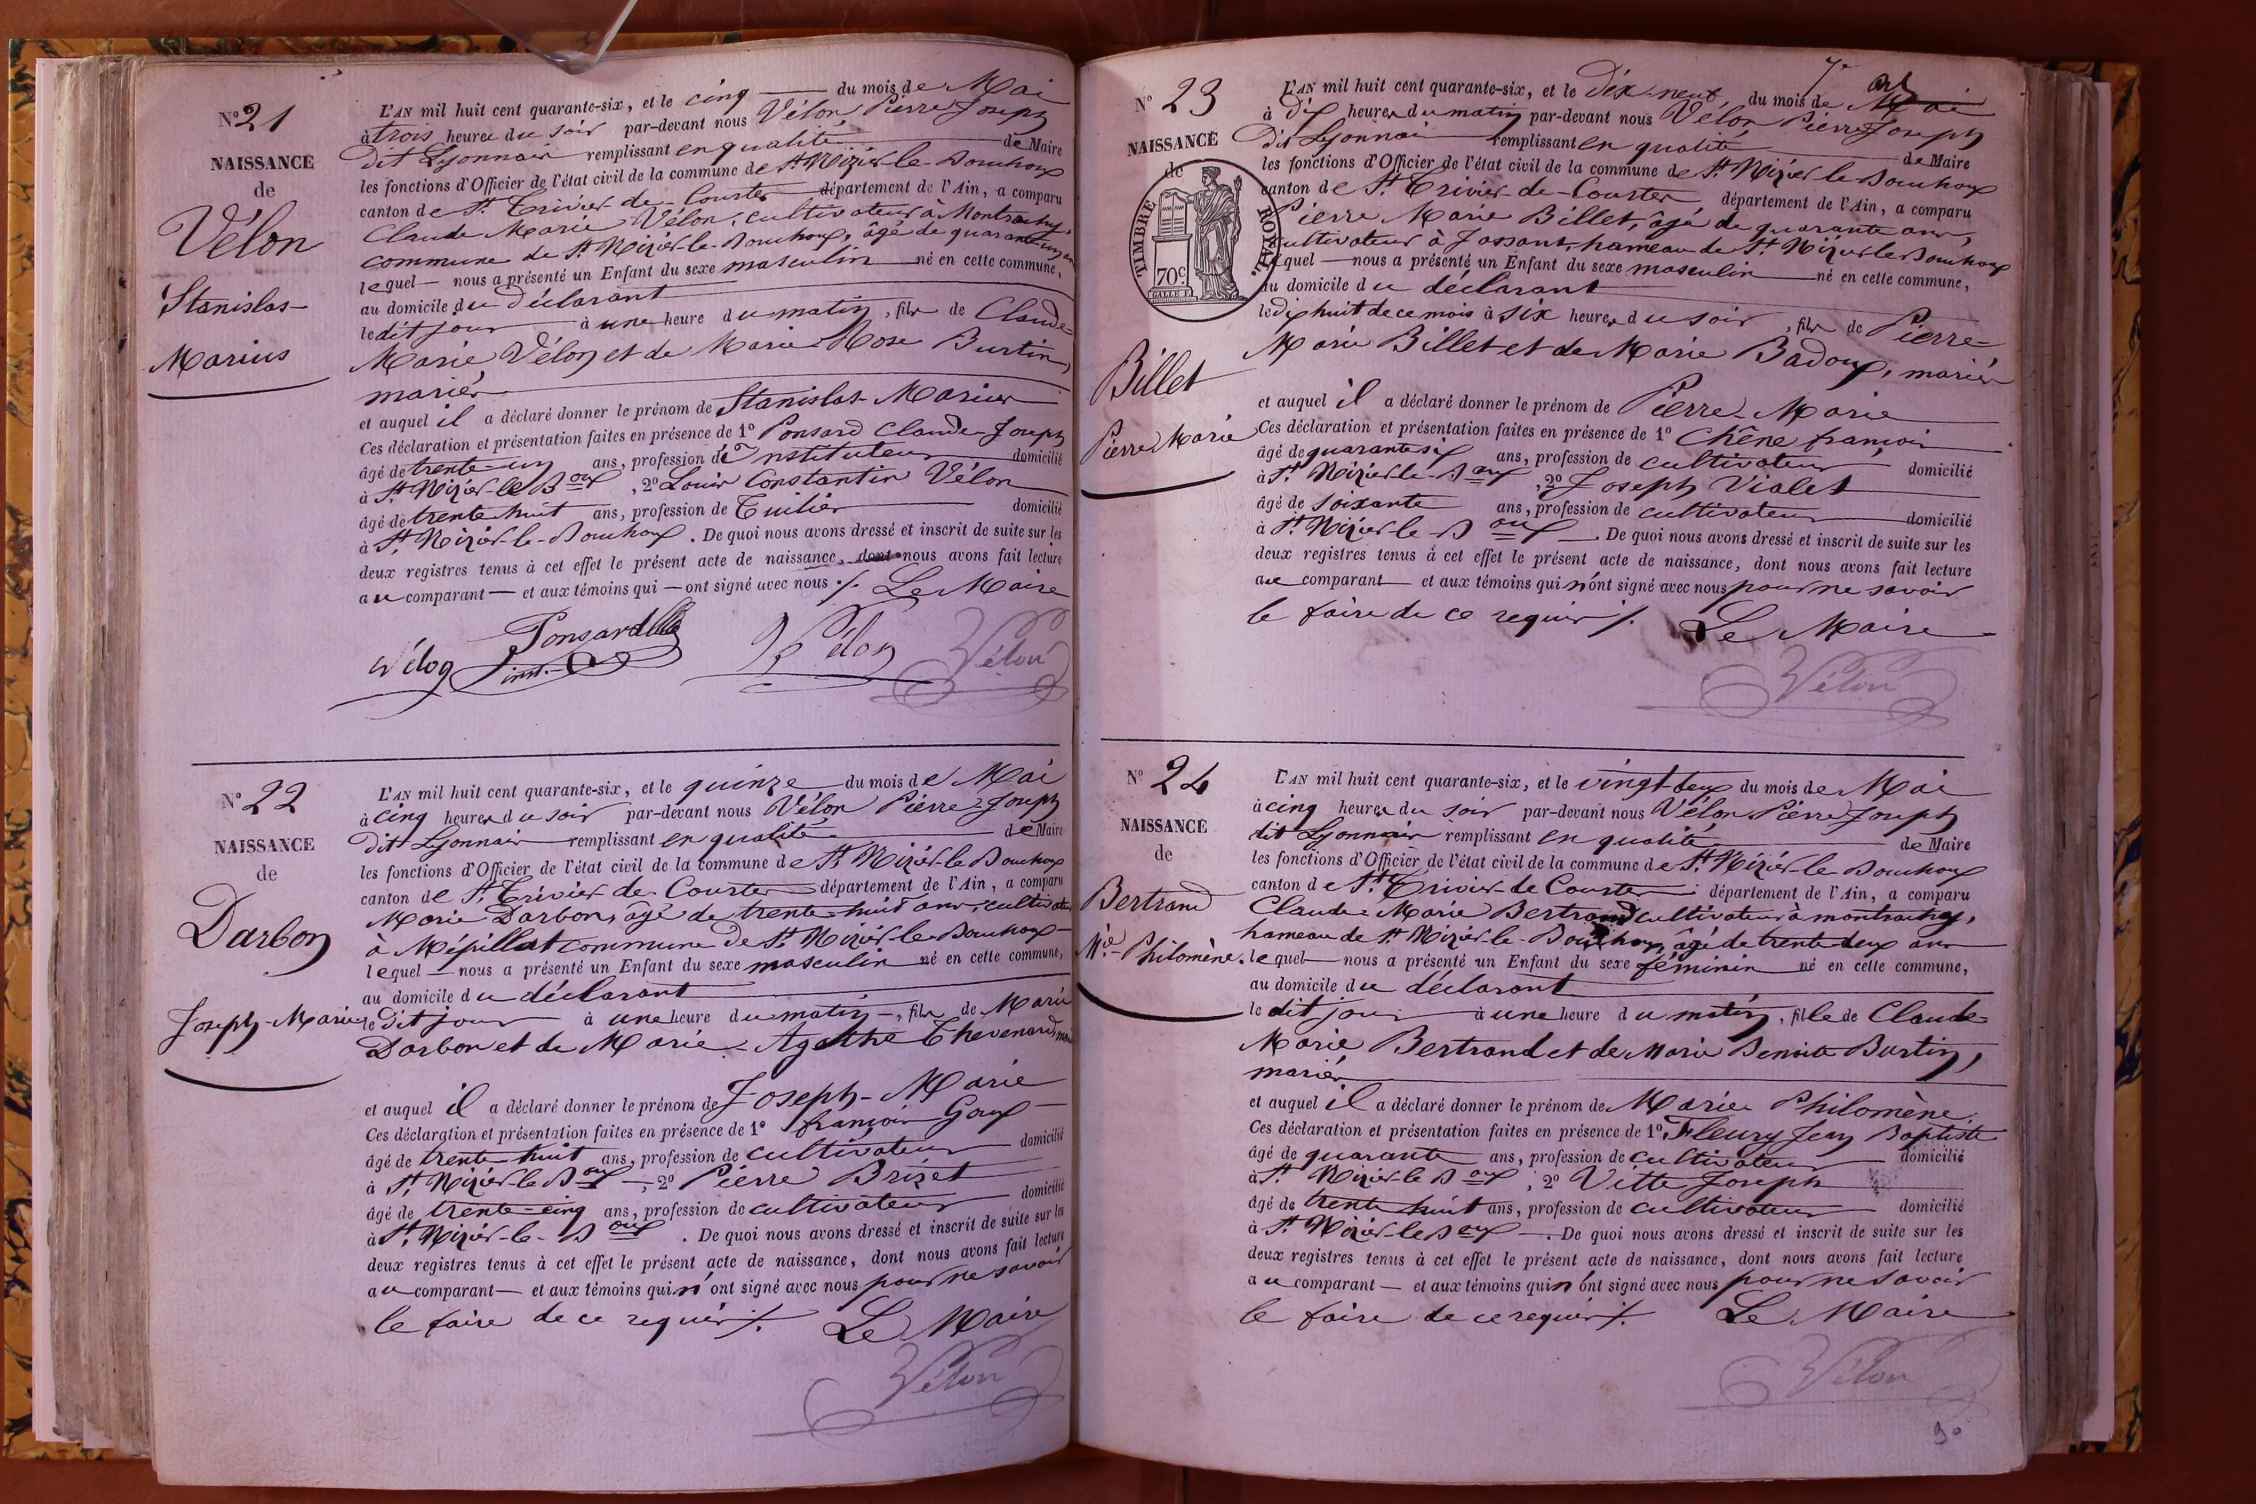 N° 21
NAISSANCE
de
Vélon
Stanislas-
Marius
L'AN mil huit cent quarante-six, et le cinq du mois de Mai
à trois heures du soir par-devant nous Vélon Pierre Joseph
dit Lyonnais remplissant en qualité de Maire
les fonctions d'Officier de l'état civil de la commune de St Nizier-le-Bouchoux
canton de St Trivier-de-Courtes département de l'Ain, a comparu
Claude Marie Vélon, cultivateur à Montrachy,
commune de St Nizier-le-Bouchoux, âgé de quarante un ans
lequel — nous a présenté un Enfant du sexe masculin né en cette commune,
au domicile du déclarant
le dit jour à une heure du matin, fils de Claude-
Marie Vélon et de Marie Rose Burtin,
mariés
et auquel il a déclaré donner le prénom de Stanislas-Marius
Ces déclaration et présentation faites en présence de 1° Ponsard Claude-Joseph
âgé de trente-un ans, profession de Instituteur domicilié
à St Nizier-le-Boux, 2° Louis Constantin Vélon
âgé de trente huit ans, profession de Tuilier domicilié
à St Nizier-le-Bouchoux. De quoi nous avons dressé et inscrit de suite sur les
deux registres tenus à cet effet le présent acte de naissance, dont nous avons fait lecture
au comparant — et aux témoins qui — ont signé avec nous ./. Le Maire
Vélon Ponsard inst. Vélon Vélon
N° 22
NAISSANCE
de
Darbon
Joseph-Marie
L'AN mil huit cent quarante-six, et le quinze du mois de Mai
à cinq heures du soir par-devant nous Vélon Pierre Joseph
dit Lyonnais remplissant en qualité de Maire
les fonctions d'Officier de l'état civil de la commune de St Nizier-le-Bouchoux
canton de St Trivier-de-Courtes département de l'Ain, a comparu
Marie Darbon, âgé de trente-huit ans, cultivateur
à Mépillat commune de St Nizier-le-Bouchoux
lequel — nous a présenté un Enfant du sexe masculin né en cette commune,
au domicile du déclarant
le dit jour à une heure du matin, fils de Marie
Darbon et de Marie-Agathe Thevenard,
et auquel il a déclaré donner le prénom de Joseph-Marie
Ces déclaration et présentation faites en présence de 1° françois Goux
âgé de trente huit ans, profession de cultivateur domicilié
à St Nizier-le-Boux, 2° Pierre Brizet
âgé de trente-cinq ans, profession de cultivateur domicilié
à St Nizier-le-Boux. De quoi nous avons dressé et inscrit de suite sur les
deux registres tenus à cet effet le présent acte de naissance, dont nous avons fait lecture
au comparant — et aux témoins qui n'ont signé avec nous pour ne savoir
le faire de ce requis ./. Le Maire
Vélon
N° 23
NAISSANCE
de
TIMBRE ROYAL
70c
Billet
Pierre Marie
L'AN mil huit cent quarante-six, et le dix-neuf, du mois de Mai
à dix heures du matin par-devant nous Vélon Pierre Joseph
dit Lyonnais remplissant en qualité de Maire
les fonctions d'Officier de l'état civil de la commune de St Nizier-le-Bouchoux
canton de St Trivier-de-Courtes département de l'Ain, a comparu
Pierre Marie Billet, âgé de quarante ans,
cultivateur à Jassans, hameau de St Nizier-le-Bouchoux
lequel — nous a présenté un Enfant du sexe masculin né en cette commune,
au domicile du déclarant
le dix huit de ce mois à six heures du soir, fils de Pierre-
Marie Billet et de Marie Badoux, mariés
et auquel il a déclaré donner le prénom de Pierre-Marie
Ces déclaration et présentation faites en présence de 1° Chêne françois
âgé de quarante six ans, profession de cultivateur, domicilié
à St Nizier-le-Boux, 2° Joseph Violet
âgé de soixante ans, profession de cultivateur domicilié
à St Nizier-le-Boux. De quoi nous avons dressé et inscrit de suite sur les
deux registres tenus à cet effet le présent acte de naissance, dont nous avons fait lecture
au comparant et aux témoins qui n'ont signé avec nous pour ne savoir
le faire de ce requis ./. Le Maire
Vélon
N° 24
NAISSANCE
de
Bertrand
Mie-Philomène.
L'AN mil huit cent quarante-six, et le vingt deux du mois de Mai
à cinq heures du soir par-devant nous Vélon Pierre Joseph
dit Lyonnais remplissant en qualité de Maire
les fonctions d'Officier de l'état civil de la commune de St Nizier-le-Bouchoux
canton de St Trivier-de-Courtes département de l'Ain, a comparu
Claude-Marie Bertrand cultivateur à montrachy,
hameau de St Nizier-le-Bouchoux, âgé de trente-deux ans
lequel — nous a présenté un Enfant du sexe féminin né en cette commune,
au domicile du déclarant
le dit jour à une heure du matin, fille de Claude-
Marie Bertrand et de Marie Benoite Burtin,
mariés
et auquel il a déclaré donner le prénom de Marie Philomène
Ces déclaration et présentation faites en présence de 1° Fleury Jean Baptiste
âgé de quarante ans, profession de cultivateur domicilié
à St Nizier-le-Boux, 2° Vitte Joseph
âgé de trente huit ans, profession de cultivateur domicilié
à St Nizier-le-Boux. De quoi nous avons dressé et inscrit de suite sur les
deux registres tenus à cet effet le présent acte de naissance, dont nous avons fait lecture
au comparant — et aux témoins qui n'ont signé avec nous pour ne savoir
le faire de ce requis ./. Le Maire
Vélon